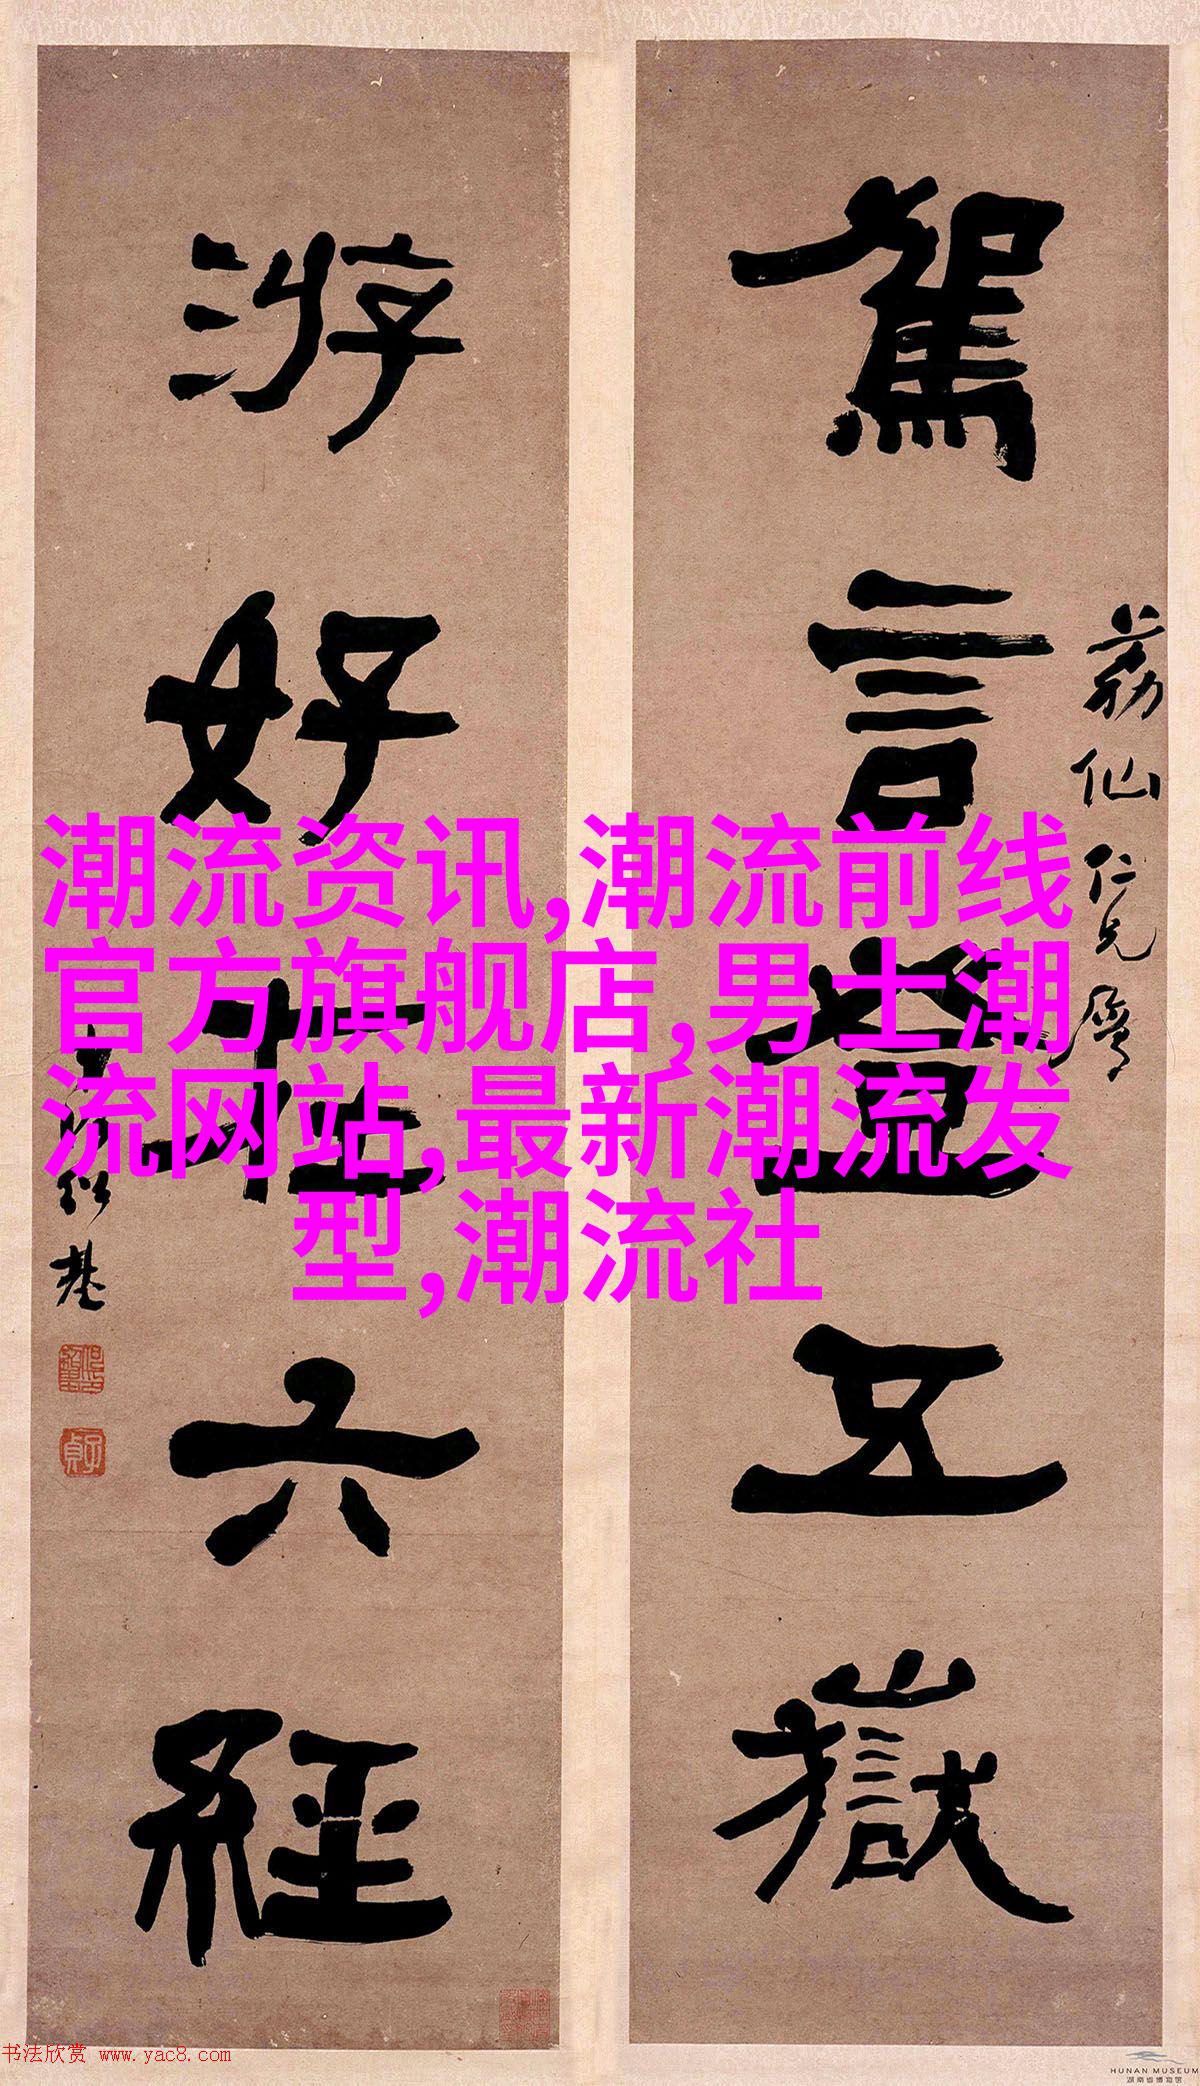 駕言登五嶽
荔仙仁兄屬
游好在六經
何紹基
子貞
潮流资讯,潮流前线
官方旗舰店,男士潮
流网站,最新潮流发
型,潮流社
书法欣赏 www.yac8.com
HUNAN MUSEUM
湖南省博物馆